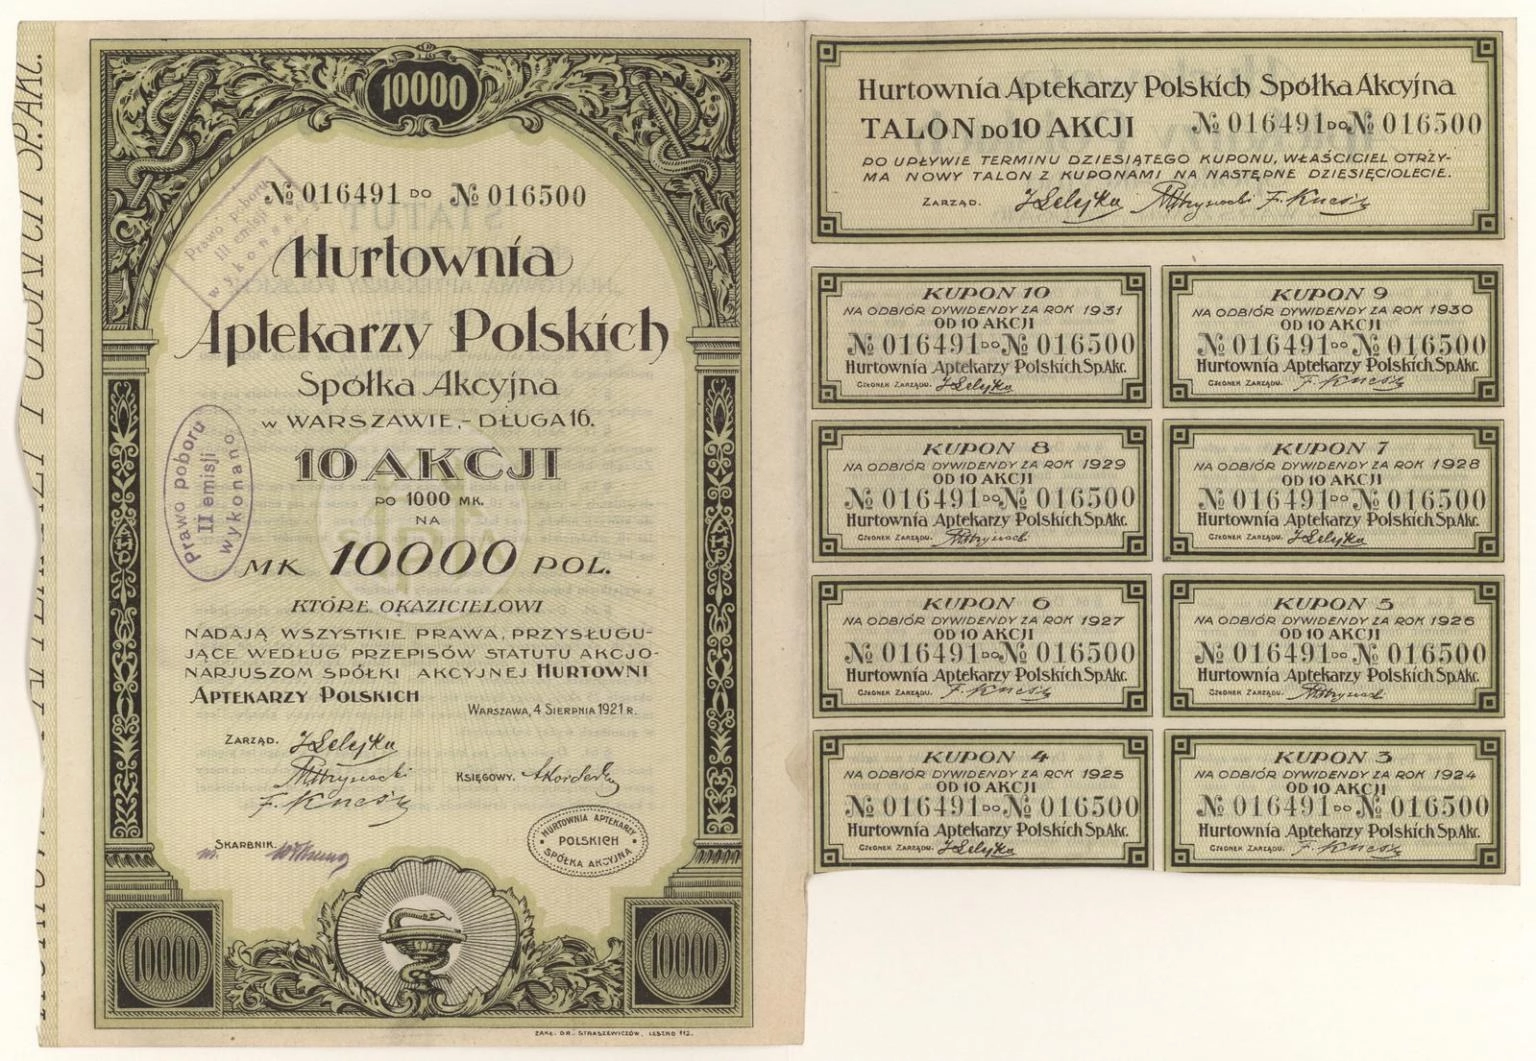 10000
№ 016491 DO № 016500
Prawo poboru
III emisji
wykonano
Hurtownia
Aptekarzy Polskich
Spółka Akcyjna
w WARSZAWIE,- DŁUGA 16.
10 AKCJI
PO 1000 MK.
NA
MK 10000 POL.
Prawo poboru
II emisji
wykonano
KTÓRE OKAZICIELOWI
NADAJĄ WSZYSTKIE PRAWA, PRZYSŁUGU-
JĄCE WEDŁUG PRZEPISÓW STATUTU AKCJO-
NARJUSZOM SPÓŁKI AKCYJNEJ HURTOWNI
APTEKARZY POLSKICH
WARSZAWA, 4 SIERPNIA 1921 R.
ZARZĄD.
KSIĘGOWY.
SKARBNIK.
HURTOWNIA APTEKARZY
POLSKICH
SPÓŁKA AKCYJNA
10000
10000
ZAKŁ. GR. STRASZEWICZÓW, LESZNO 112.
Hurtownia Aptekarzy Polskich Spółka Akcyjna
TALON DO 10 AKCJI № 016491 DO № 016500
PO UPŁYWIE TERMINU DZIESIĄTEGO KUPONU, WŁAŚCICIEL OTRZY-
MA NOWY TALON Z KUPONAMI NA NASTĘPNE DZIESIĘCIOLECIE.
ZARZĄD.
KUPON 10
NA ODBIÓR DYWIDENDY ZA ROK 1931
OD 10 AKCJI
№ 016491 DO № 016500
Hurtownia Aptekarzy Polskich Sp. Akc.
CZŁONEK ZARZĄDU.
KUPON 9
NA ODBIÓR DYWIDENDY ZA ROK 1930
OD 10 AKCJI
№ 016491 DO № 016500
Hurtownia Aptekarzy Polskich Sp. Akc.
CZŁONEK ZARZĄDU.
KUPON 8
NA ODBIÓR DYWIDENDY ZA ROK 1929
OD 10 AKCJI
№ 016491 DO № 016500
Hurtownia Aptekarzy Polskich Sp. Akc.
CZŁONEK ZARZĄDU.
KUPON 7
NA ODBIÓR DYWIDENDY ZA ROK 1928
OD 10 AKCJI
№ 016491 DO № 016500
Hurtownia Aptekarzy Polskich Sp. Akc.
CZŁONEK ZARZĄDU.
KUPON 6
NA ODBIÓR DYWIDENDY ZA ROK 1927
OD 10 AKCJI
№ 016491 DO № 016500
Hurtownia Aptekarzy Polskich Sp. Akc.
CZŁONEK ZARZĄDU.
KUPON 5
NA ODBIÓR DYWIDENDY ZA ROK 1926
OD 10 AKCJI
№ 016491 DO № 016500
Hurtownia Aptekarzy Polskich Sp. Akc.
CZŁONEK ZARZĄDU.
KUPON 4
NA ODBIÓR DYWIDENDY ZA ROK 1925
OD 10 AKCJI
№ 016491 DO № 016500
Hurtownia Aptekarzy Polskich Sp. Akc.
CZŁONEK ZARZĄDU.
KUPON 3
NA ODBIÓR DYWIDENDY ZA ROK 1924
OD 10 AKCJI
№ 016491 DO № 016500
Hurtownia Aptekarzy Polskich Sp. Akc.
CZŁONEK ZARZĄDU.